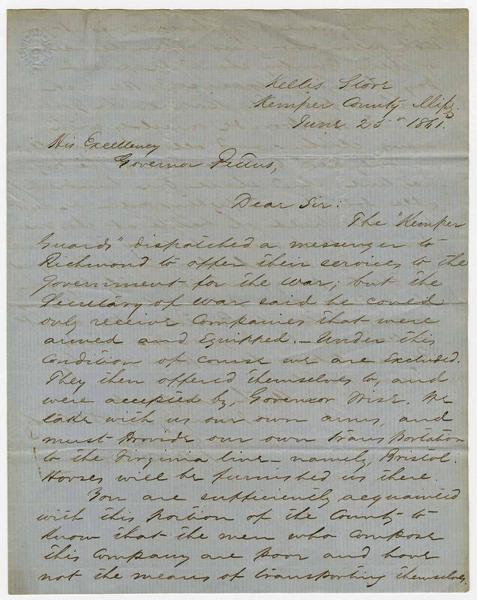 Kellis Store
Kemper County Miss.
June 25th 1861.
His Excellency
Governor Pettus,
Dear Sir:
The "Kemper
Guards" dispatched a messenger to
Richmond to offer their services to the
Government for the war; but the
Secretary of War said he could
only receive Companies that were
armed and Equipped. — Under this
condition of course we are Excluded.
They then offered themselves to, and
were accepted by, Governor Wise. We
take with us our own arms, and
must provide our own transportation
to the Virginia line — namely, Bristol.
Horses will be furnished us there.
You are sufficiently acquainted
with this portion of the County to
know that the men who compose
this Company are poor and have
not the means of transporting themselves.